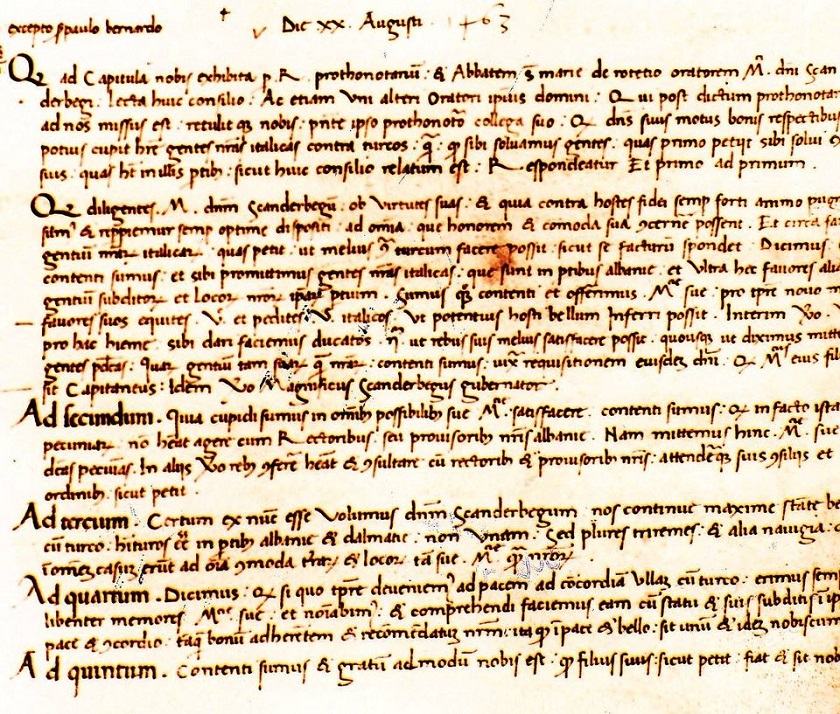 excepto ẜ paulo bernardo
Die xx. Augusti 1463
Qꝫ ad Capitula nobis exhibita p. R. prothonotariū: & Abbatem S marie de rotetio oratorem Mci. dni Scan
derbegi: lecta huic consilio: Ac etiam Vni alteri Oratori ipius domini: Qui post dictum prothonotar
ad nos missus est: retulit qꝫ nobis: pnte ipso prothonoto collega suo: Qꝫ dns suus motus bonis respectibus
potius cupit hre gentes nras italicas contra turcos: q: qꝫ sibi soluamus gentes: quas primo petijt sibi solui
suis: quas ht in illis ptib: sicut huic consilio relatum est: Respondeatur Et primo ad primum.
Qꝫ diligentes. M. dnm Scanderbegu: ob Virtutes suas: & quia contra hostes fidei semp forti animo pug
sum & reppiemur semp optime dispositi: ad omia: que honorem & comoda sua ꝯcerne possent. Et circa fa
gentiu nrar italicar quas petit: ut melius ꝯ turcum facere possit: sicut se facturu spondet: Dicimus:
contenti sumus: et sibi promittimus gentes nras italicas: que sunt in ptibus albanie: et Vltra hec fauores ali
gentiu subditor et locor nror ipar ptium. Sumus qꝫ contenti et offerimus. Mtie sue: pro tpre nouo m
fauores suos equites. V. et pedites. V. italicos: Vt potentius hosti bellum Inferri possit. Interim Vo.
pro hac hieme: sibi dari faciemus ducatos: ut rebus suis melius satisfacere possit: quousqꝫ ut diximus mitt
gentes pdcas: Quar gentiu tam suar qꝫ nrar: contenti sumus: requisitionem eiusdez dni: Qꝫ Mcus eius fil
sit Capitaneus: Idem Vo Magnificus Scanderbegus gubernator.
Ad secundum. Quia cupidi sumus in omib possibilib sue Mtie satisfacere. contenti sumus: Qꝫ in facto ista
pecuniar no heat agere cum Rectoribus: seu prouisorib nris albanie. Nam mittemus hinc. M. sue
dcas pecunias. In alijs Vo reb ꝯferre heat & ꝯsultare cu rectorib & prouisorib nris: attendeqꝫ suis ꝯsilijs et
ordinib: sicut petit.
Ad tercium. Certum ex nuc esse Volumus dnm Scanderbegum: nos continue maxime state be
cu turco: hituros ee in ptib albanie & dalmatie: non Vnam: Sed plures triremes: & alia nauigia
ī omez casuz erut ad oia ꝯmoda trar & locor ta sue. Mtie qꝫ nror.
Ad quartum. Dicimus: Qꝫ si quo tpre deueniemus ad pacem ad cocordia Vllaz cu turco: erimus sem
libenter memores Mtie sue: et noiabim: & comprehendi faciemus eam cu statu & suis subditis ī ip
pace & ꝯcordio: taqꝫ bonu adheretem & recomendatuz nrm: ita qꝫ ī pace & bello: sit unu & idez nobiscum
Ad quintum. Contenti sumus & gratu admodu nobis est: qꝫ filius suus: sicut petit: fiat & sit nob